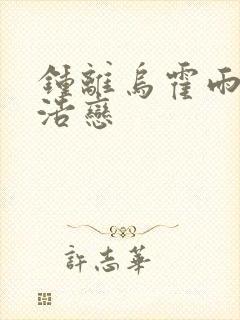 鍾離烏霍雨
浩戀
許志華